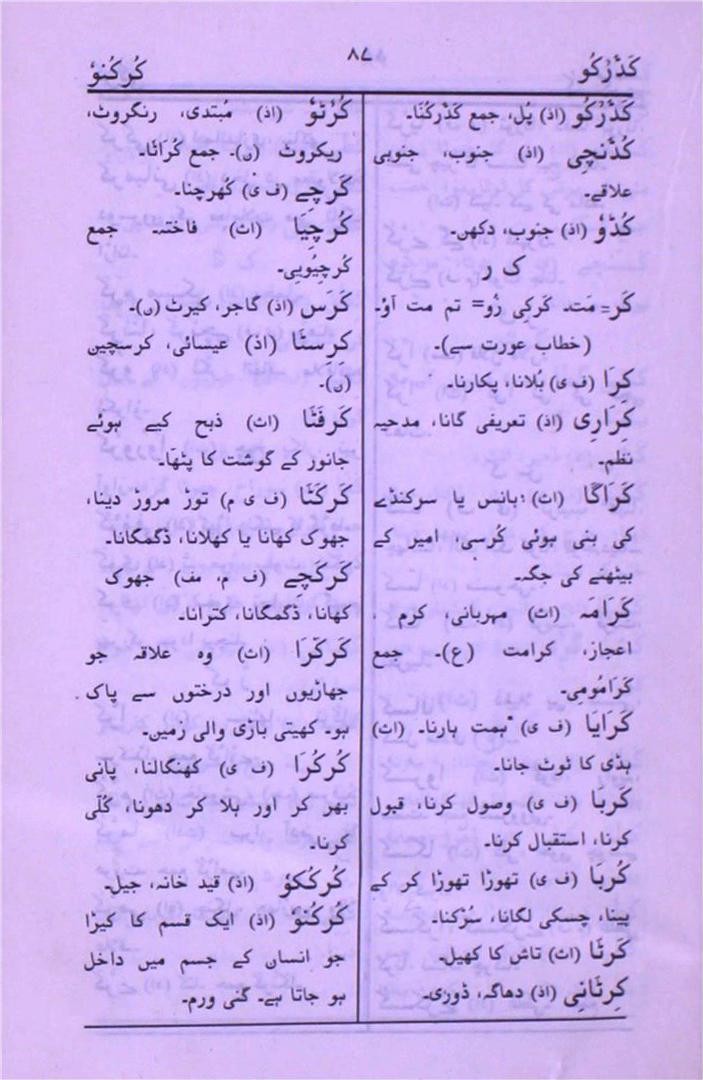 کَڈَرُکُو
۸۷
کُرکُنوْ
کَڈَرُکُو (اذ) پُل، جمع کَڈَرکُنَا۔
کُڈَنچِی (اذ) جنوب، جنوبی
علاقے۔
کُڈَوْ (اذ) جنوب، دکھن۔
ک ر
کَر = مَت۔ کَرکِی زُو= تم مت آؤ۔
(خطاب عورت سے)۔
کِرَا (ف ی) بُلانا، پکارنا۔
کِرَارِی (اذ) تعریفی گانا، مدحیہ
نظم۔
کَرَاگَا (اث) بانس یا سرکنڈے
کی بنی ہوئی کُرسی، امیر کے
بیٹھنے کی جگہ۔
کَرَامَہ (اث) مہربانی، کرم ،
اعجاز، کرامت (ع)۔ جمع
کَرَامُومِی۔
کَرَایَا (ف ی) ہمت ہارنا۔ (اث)
ہڈی کا ٹوٹ جانا۔
کَربَا (ف ی) وصول کرنا، قبول
کرنا، استقبال کرنا۔
کُربَا (ف ی) تھوڑا تھوڑا کر کے
پینا، چسکی لگانا، سُڑکنا۔
کَرتَا (اث) تاش کا کھیل۔
کِرتَانِی (اذ) دھاگہ، ڈوری۔
کُرْتَوْ (اذ) مُبتدی، رنگروٹ،
ریکروٹ (ن)۔ جمع کُرَاتَا۔
کَرچَے (ف ی) کُھرچنا۔
کُرچِیَا (اث) فاختہ۔ جمع
کُرچِیُوبِی۔
کَرَس (اذ) گاجر، کیرٹ (ن)۔
کِرِستَا (اذ) عیسائی، کرسچین
(ن)۔
کَرفَتَا (اث) ذبح کیے ہوئے
جانور کے گوشت کا پٹھا۔
کَرکَتَا (ف ی م) توڑ مروڑ دینا،
جھوک کھانا یا کھلانا، ڈگمگانا۔
کَرکَچَے (ف م، مف) جھوک
کھانا، ڈگمگانا، کترانا۔
کَرکَرَا (اث) وہ علاقہ جو
جھاڑیوں اور درختوں سے پاک
ہو۔ کھیتی باڑی والی زمین۔
کُرکُرَا (ف ی) کھنگالنا، پانی
بھر کر اور ہلا کر دھونا، کُلّی
کرنا۔
کُرکُکوْ (اذ) قید خانہ، جیل۔
کُرکُنوْ (اذ) ایک قسم کا کیڑا
جو انسان کے جسم میں داخل
ہو جاتا ہے۔ گنی ورم۔